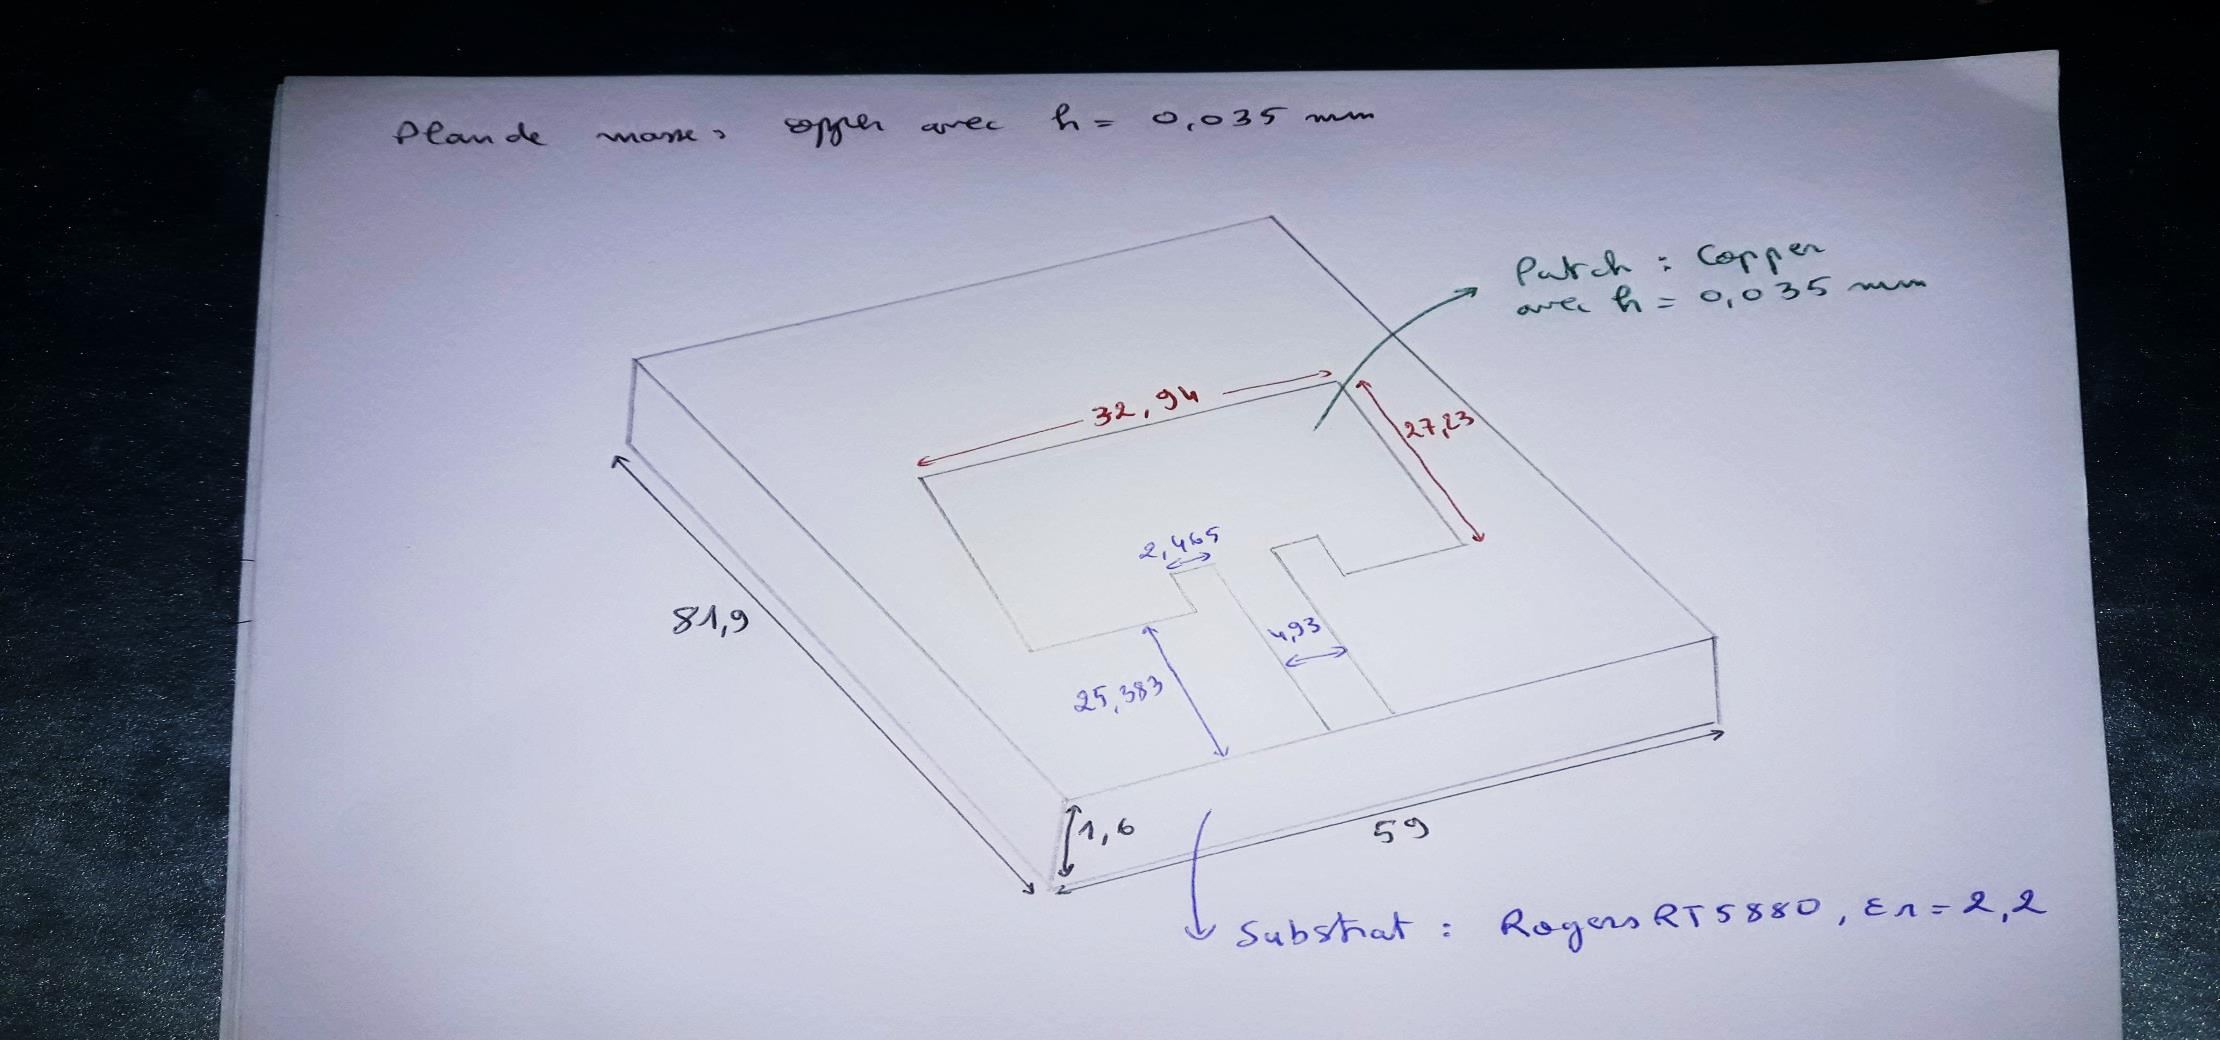 Plan de masse, copper avec h = 0,035 mm
Patch : Copper
avec h = 0,035 mm
32,94
27,23
2,465
4,93
25,383
81,9
1,6
59
Substrat : Rogers RT5880, εr = 2,2